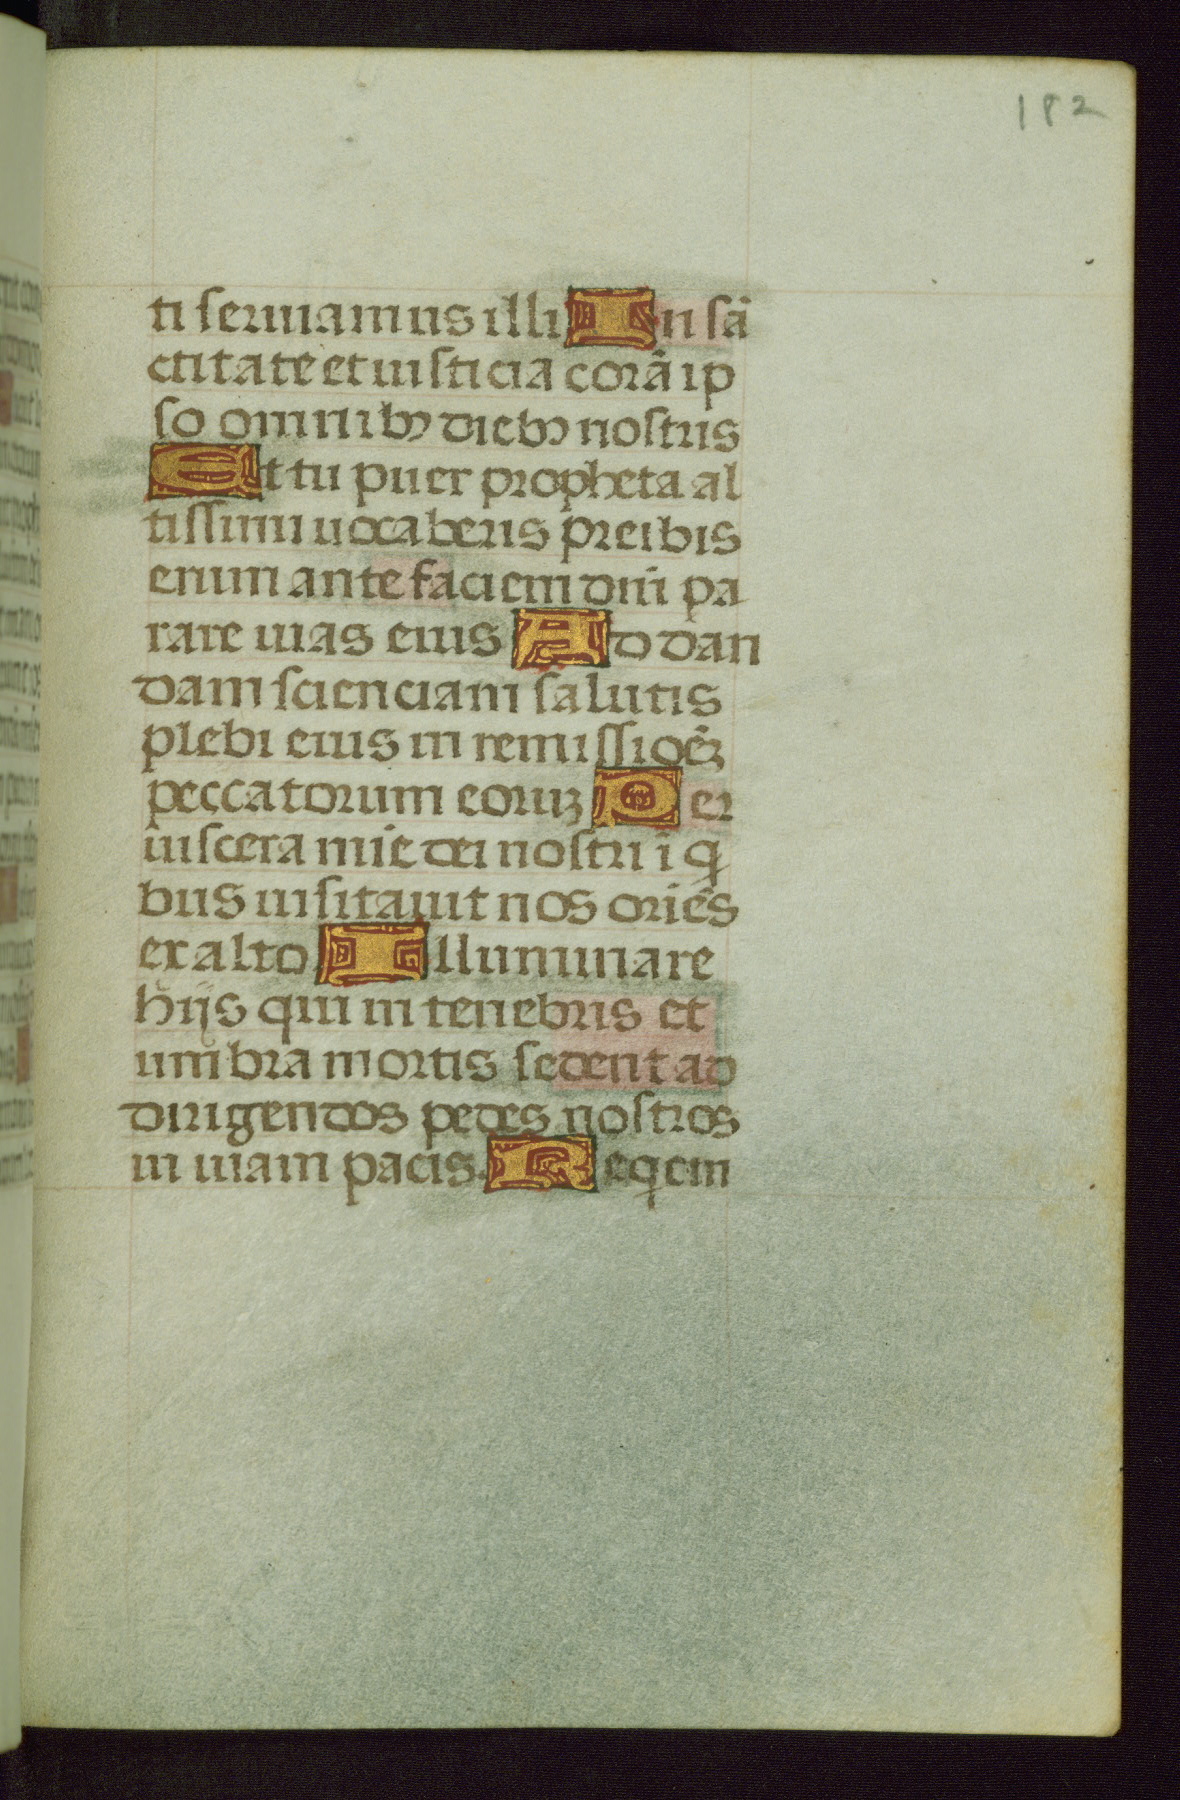 182
ti seruiamus illi In sā
ctitate et iusticia corā ip
so omnibꝰ diebꝰ nostris
Et tu puer propheta al
tissimi uocaberis preibis
enim ante faciem dn̄i pa
rare uias eius Ad dan
dam scienciam salutis
plebi eius in remissioēꝫ
peccatorum eoruꝫ Per
uiscera mīe dei nostri ī q̄
bus uisitauit nos oriēs
ex alto Illuminare
hijs qui in tenebris et
umbra mortis sedent ad
dirigendos pedes nostros
in uiam pacis. Reqem